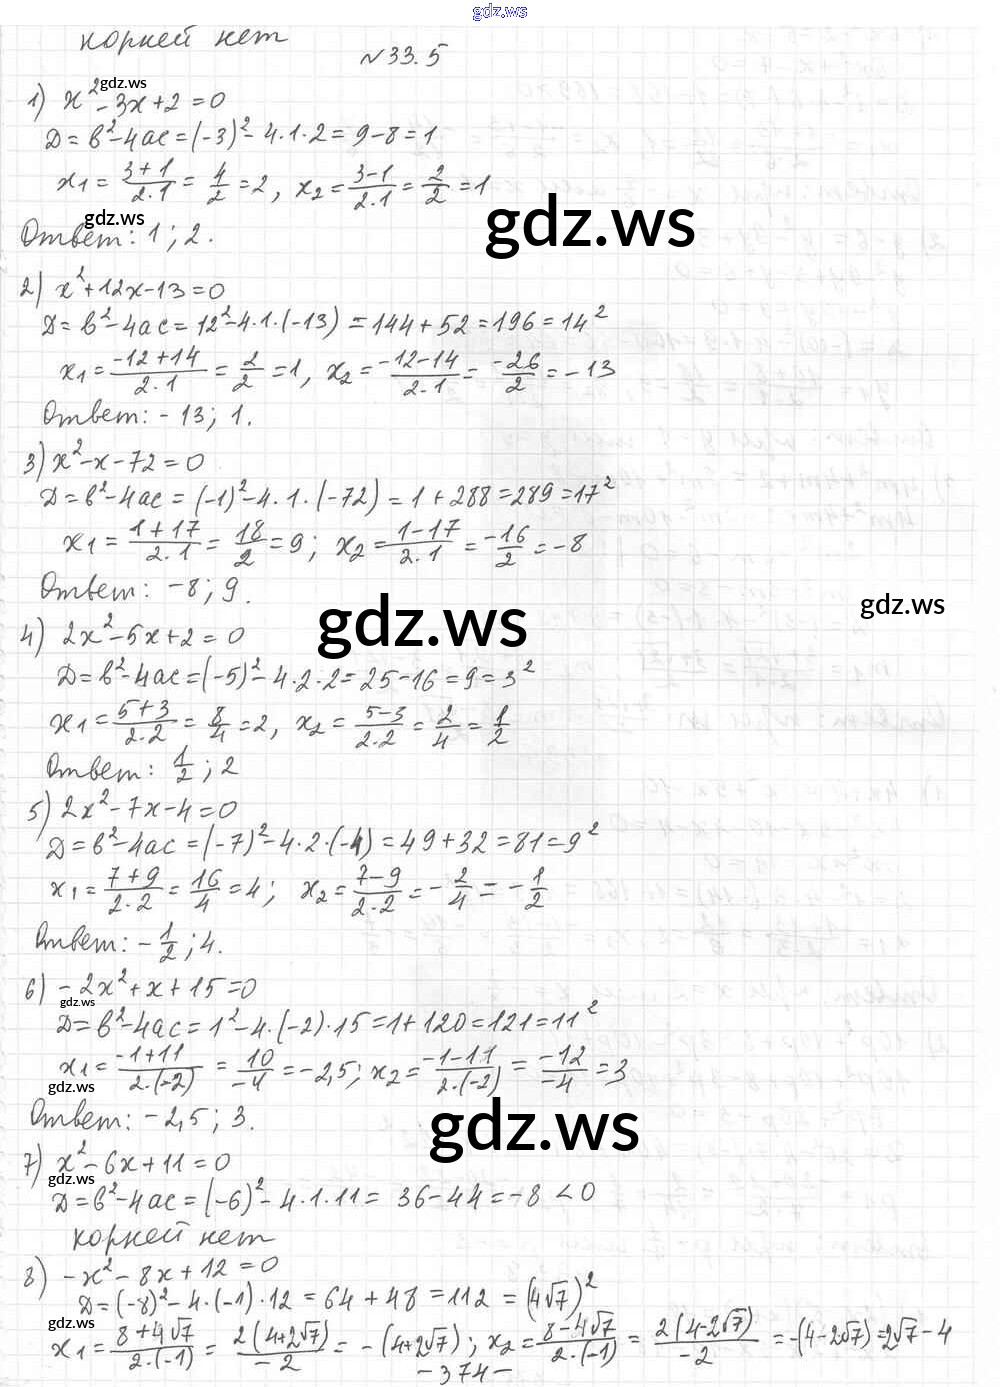 gdz.ws
корней нет
№33.5
gdz.ws
1) x²-3x+2=0
D=b²-4ac=(-3)²-4·1·2=9-8=1
x₁=(3+1)/(2·1)=4/2=2, x₂=(3-1)/(2·1)=2/2=1
gdz.ws
gdz.ws
Ответ: 1; 2.
2) x²+12x-13=0
D=b²-4ac=12²-4·1·(-13)=144+52=196=14²
x₁=(-12+14)/(2·1)=2/2=1, x₂=(-12-14)/(2·1)=-26/2=-13
Ответ: -13; 1.
3) x²-x-72=0
D=b²-4ac=(-1)²-4·1·(-72)=1+288=289=17²
x₁=(1+17)/(2·1)=18/2=9; x₂=(1-17)/(2·1)=-16/2=-8
Ответ: -8; 9.
gdz.ws
gdz.ws
4) 2x²-5x+2=0
D=b²-4ac=(-5)²-4·2·2=25-16=9=3²
x₁=(5+3)/(2·2)=8/4=2, x₂=(5-3)/(2·2)=2/4=1/2
Ответ: 1/2; 2
5) 2x²-7x-4=0
D=b²-4ac=(-7)²-4·2·(-4)=49+32=81=9²
x₁=(7+9)/(2·2)=16/4=4; x₂=(7-9)/(2·2)=-2/4=-1/2
Ответ: -1/2; 4.
6) -2x²+x+15=0
gdz.ws
D=b²-4ac=1²-4·(-2)·15=1+120=121=11²
x₁=(-1+11)/(2·(-2))=10/-4=-2,5; x₂=(-1-11)/(2·(-2))=-12/-4=3
gdz.ws
Ответ: -2,5; 3.
gdz.ws
7) x²-6x+11=0
gdz.ws
D=b²-4ac=(-6)²-4·1·11=36-44=-8<0
корней нет
8) -x²-8x+12=0
D=(-8)²-4·(-1)·12=64+48=112=(4√7)²
gdz.ws
x₁=(8+4√7)/(2·(-1))=2(4+2√7)/-2=-(4+2√7); x₂=(8-4√7)/(2·(-1))=2(4-2√7)/-2=-(4-2√7)=2√7-4
-374-